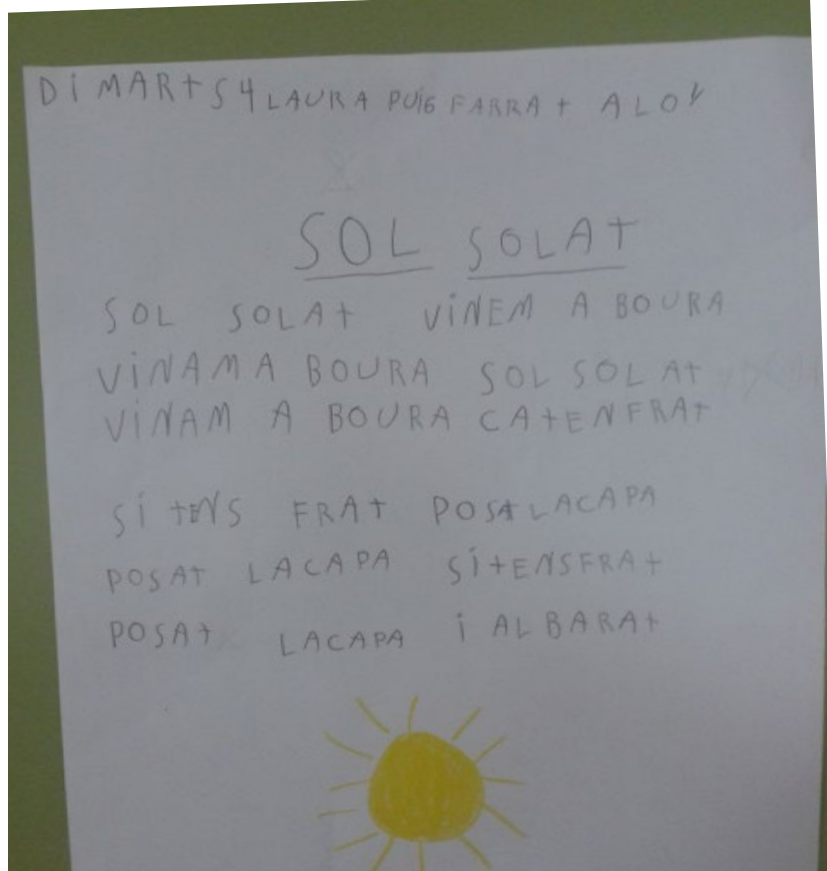 DiMARTS 4 LAURA PUIG FARRAT ALOY
SOL SOLAT
SOL SOLAT ViNEM A BOURA
ViNAMA BOURA SOL SOLAT
ViNAM A BOURA CATENFRAT
Si TENS FRAT POSAT LACAPA
POSAT LACAPA SiTENSFRAT
POSAT LACAPA i ALBARAT